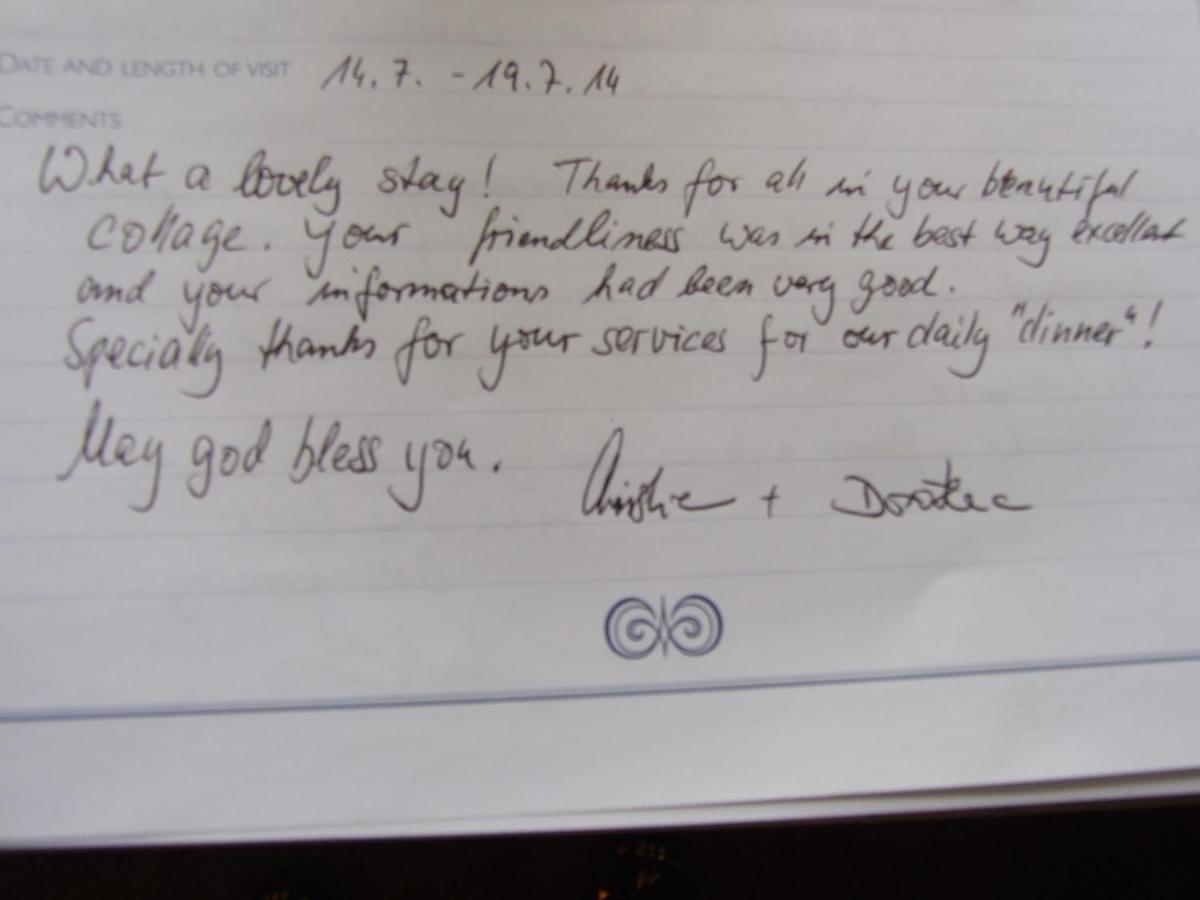 DATE AND LENGTH OF VISIT 14.7. - 19.7.14
COMMENTS
What a lovely stay! Thanks for all in your beautiful
cottage. Your friendliness was in the best way excellent
and your informations had been very good.
Specially thanks for your services for our daily "dinner"!
May god bless you. + Dorothee